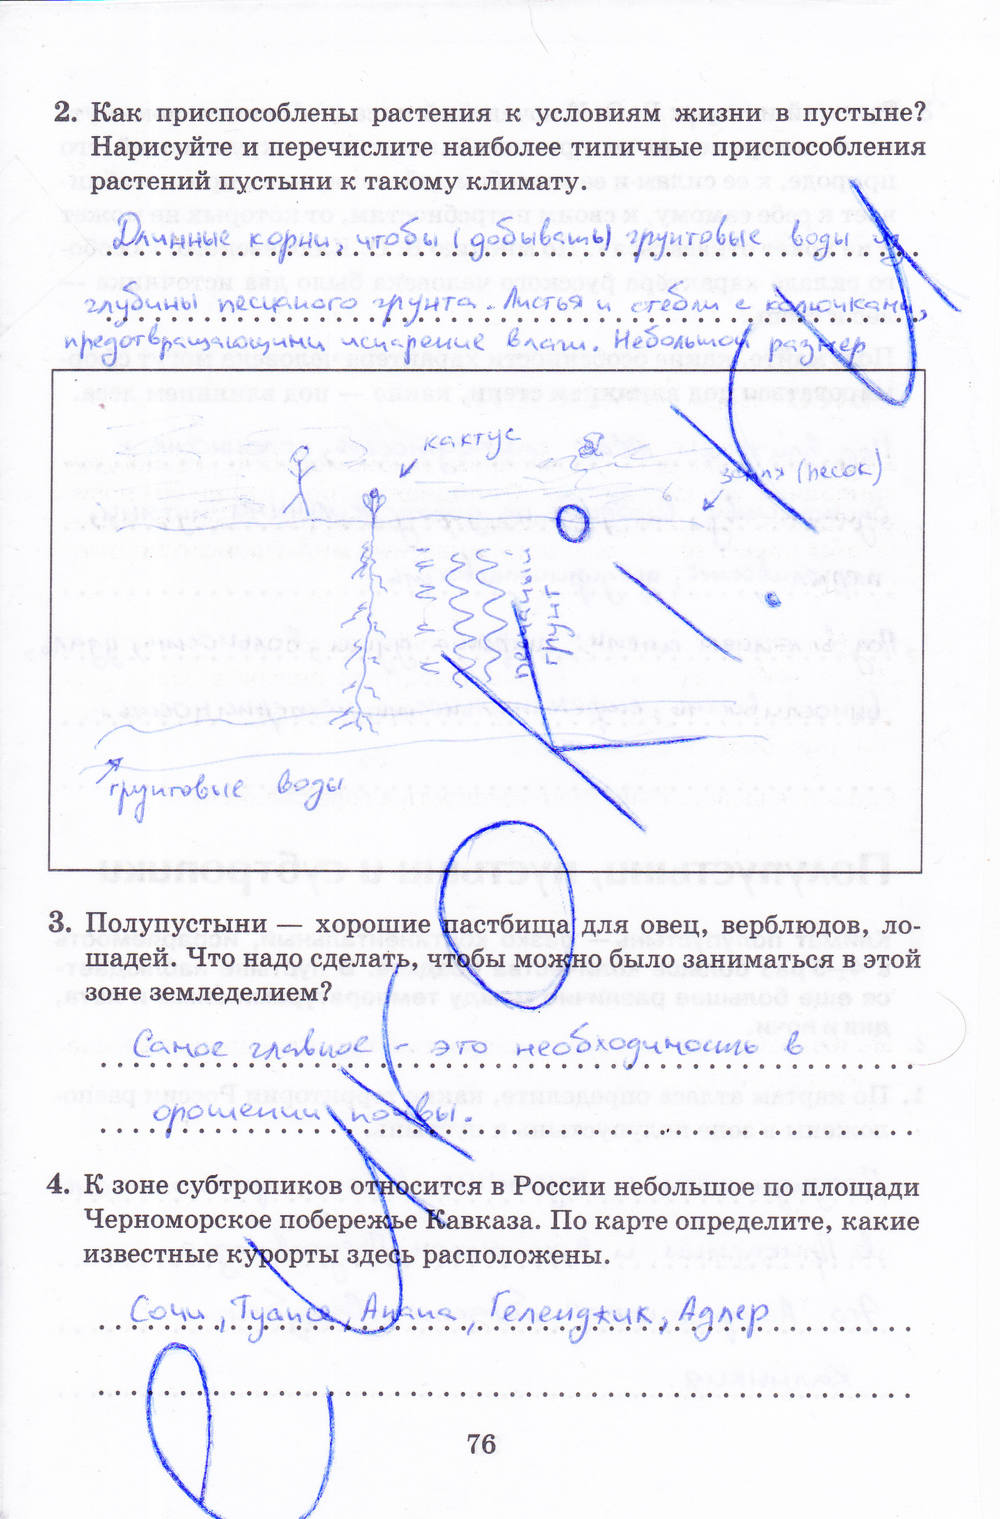 2. Как приспособлены растения к условиям жизни в пустыне?
Нарисуйте и перечислите наиболее типичные приспособления
растений пустыни к такому климату.
Длинные корни, чтобы (добывать) грунтовые воды из
глубины песчаного грунта. Листья и стебли с колючками,
предотвращающими испарение влаги. Небольшой размер
кактус
земля (песок)
песчаный
грунт
грунтовые воды
3. Полупустыни — хорошие пастбища для овец, верблюдов, ло-
шадей. Что надо сделать, чтобы можно было заниматься в этой
зоне земледелием?
Самое главное - это необходимость в
орошении почвы.
4. К зоне субтропиков относится в России небольшое по площади
Черноморское побережье Кавказа. По карте определите, какие
известные курорты здесь расположены.
Сочи, Туапсе, Анапа, Геленджик, Адлер
76